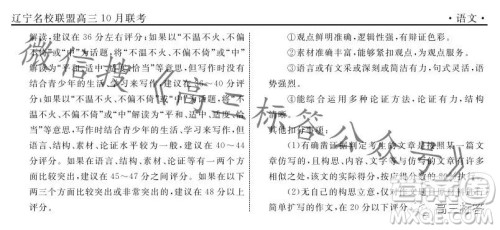 辽宁名校联盟高三10月联考
·语文·
解读,建议在36分左右评分;如果以“不温不火、不偏不倚”或“中”为话题,将“不温不火、不偏不倚”或“中”解读为“平和、适中、适度、恰当”等意思,但写作时没有结合青少年的生活、学习来写作,建议在36~40分评分;如果以“不温不火、不偏不倚”或“中”为话题,将“不温不火、不偏不倚”或“中”解读为“平和、适中、适度、恰当”等意思,结合青少年的生活、学习来写作,但语言、结构、素材、论证水平较为一般,建议在40~44分评分;在此基础上,语言、结构、素材、论证等在一两个方面比较突出或更好,建议在45~47分之间评分;如果在四个方面都比较突出或丰富,建议在48分以上评分。
①观点鲜明,辩证理性,有思想。
②结构层层深入,有很强的逻辑性。
③语言或有文采或深刻或简洁有力,句式灵活,语势强烈。
④能综合运用多种论证方法,论证有力、有气势。
其他扣分事项:
(1)有确凿证据判定考生的文章是按照某一篇文章的构思、内容、文字等写作或是与某一篇文章有雷同的,在10分以下评分。
(2)无自己的构思立意,仅对材料内容扩写或是简单扩写的作文,在20分以下评分。
微信搜《高三标答公众号》
高三标答